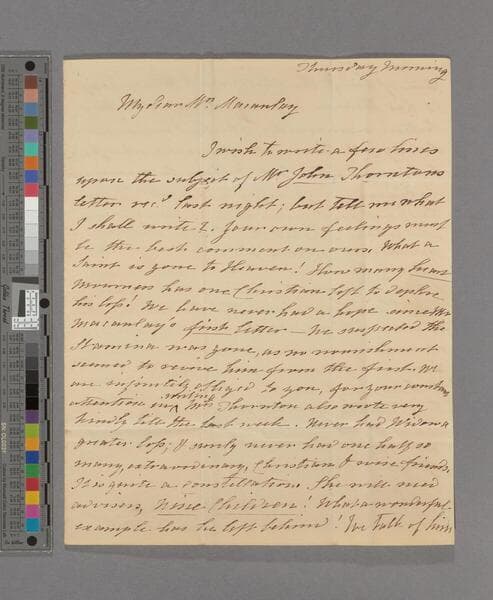 Thursday morning
My dear Mrs. Macaulay
I wish to write a few lines
upon the subject of Mr John Thorntons
letter recd. last night; but tell me what
I shall write? Your own feelings must
be the best comment on ours. What a
Saint is gone to Heaven! How many heart
Mourners has one Christian left to deplore
his loss! We have never had a hope since Mr
Macaulay's first letter — We suspected the
Stamina was gone, as no nourishment
seemed to revive him from the first. We
are infinitely obliged to you, for your constant
attention in writing Mrs Thornton also wrote very
kindly till the last week. Never had Widow a
greater loss; & surely never had one half so
many, extraordinary, Christian & wise friends
It is quite a constellation. She will need
advisers, Nine Children! What a wonderful
example has he left behind! We talk of him